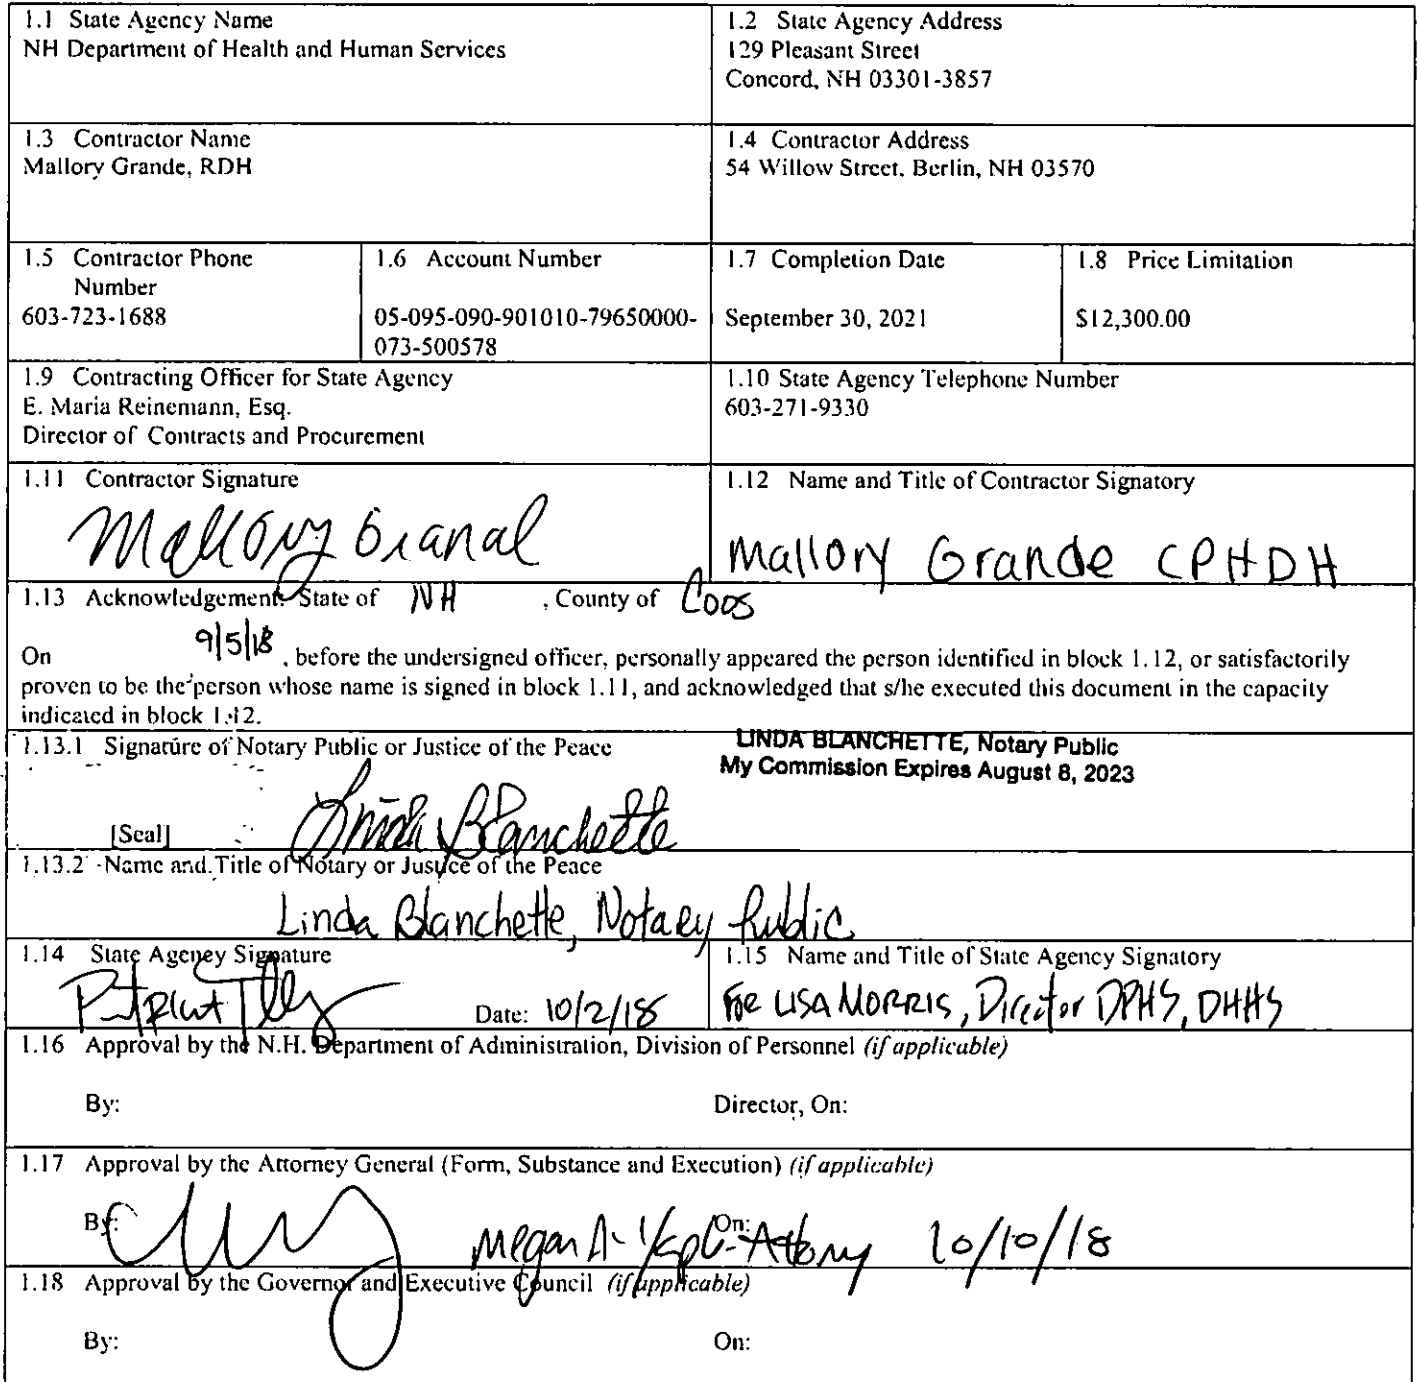 1.1 State Agency Name
NH Department of Health and Human Services
1.2 State Agency Address
129 Pleasant Street
Concord, NH 03301-3857
1.3 Contractor Name
Mallory Grande, RDH
1.4 Contractor Address
54 Willow Street, Berlin, NH 03570
1.5 Contractor Phone
Number
603-723-1688
1.6 Account Number
05-095-090-901010-79650000-
073-500578
1.7 Completion Date
September 30, 2021
1.8 Price Limitation
$12,300.00
1.9 Contracting Officer for State Agency
E. Maria Reinemann, Esq.
Director of Contracts and Procurement
1.10 State Agency Telephone Number
603-271-9330
1.11 Contractor Signature
Mallory Grande
1.12 Name and Title of Contractor Signatory
Mallory Grande CPHDH
1.13 Acknowledgement: State of NH , County of Coos
On 9/5/18 , before the undersigned officer, personally appeared the person identified in block 1.12, or satisfactorily
proven to be the person whose name is signed in block 1.11, and acknowledged that s/he executed this document in the capacity
indicated in block 1.12.
1.13.1 Signature of Notary Public or Justice of the Peace
LINDA BLANCHETTE, Notary Public
My Commission Expires August 8, 2023
[Seal] Linda Blanchette
1.13.2 Name and Title of Notary or Justice of the Peace
Linda Blanchette, Notary Public
1.14 State Agency Signature
Date: 10/2/18
1.15 Name and Title of State Agency Signatory
For LISA MORRIS, Director DPHS, DHHS
1.16 Approval by the N.H. Department of Administration, Division of Personnel (if applicable)
By: Director, On:
1.17 Approval by the Attorney General (Form, Substance and Execution) (if applicable)
By: Megan A. On: Attorney 10/10/18
1.18 Approval by the Governor and Executive Council (if applicable)
By: On: